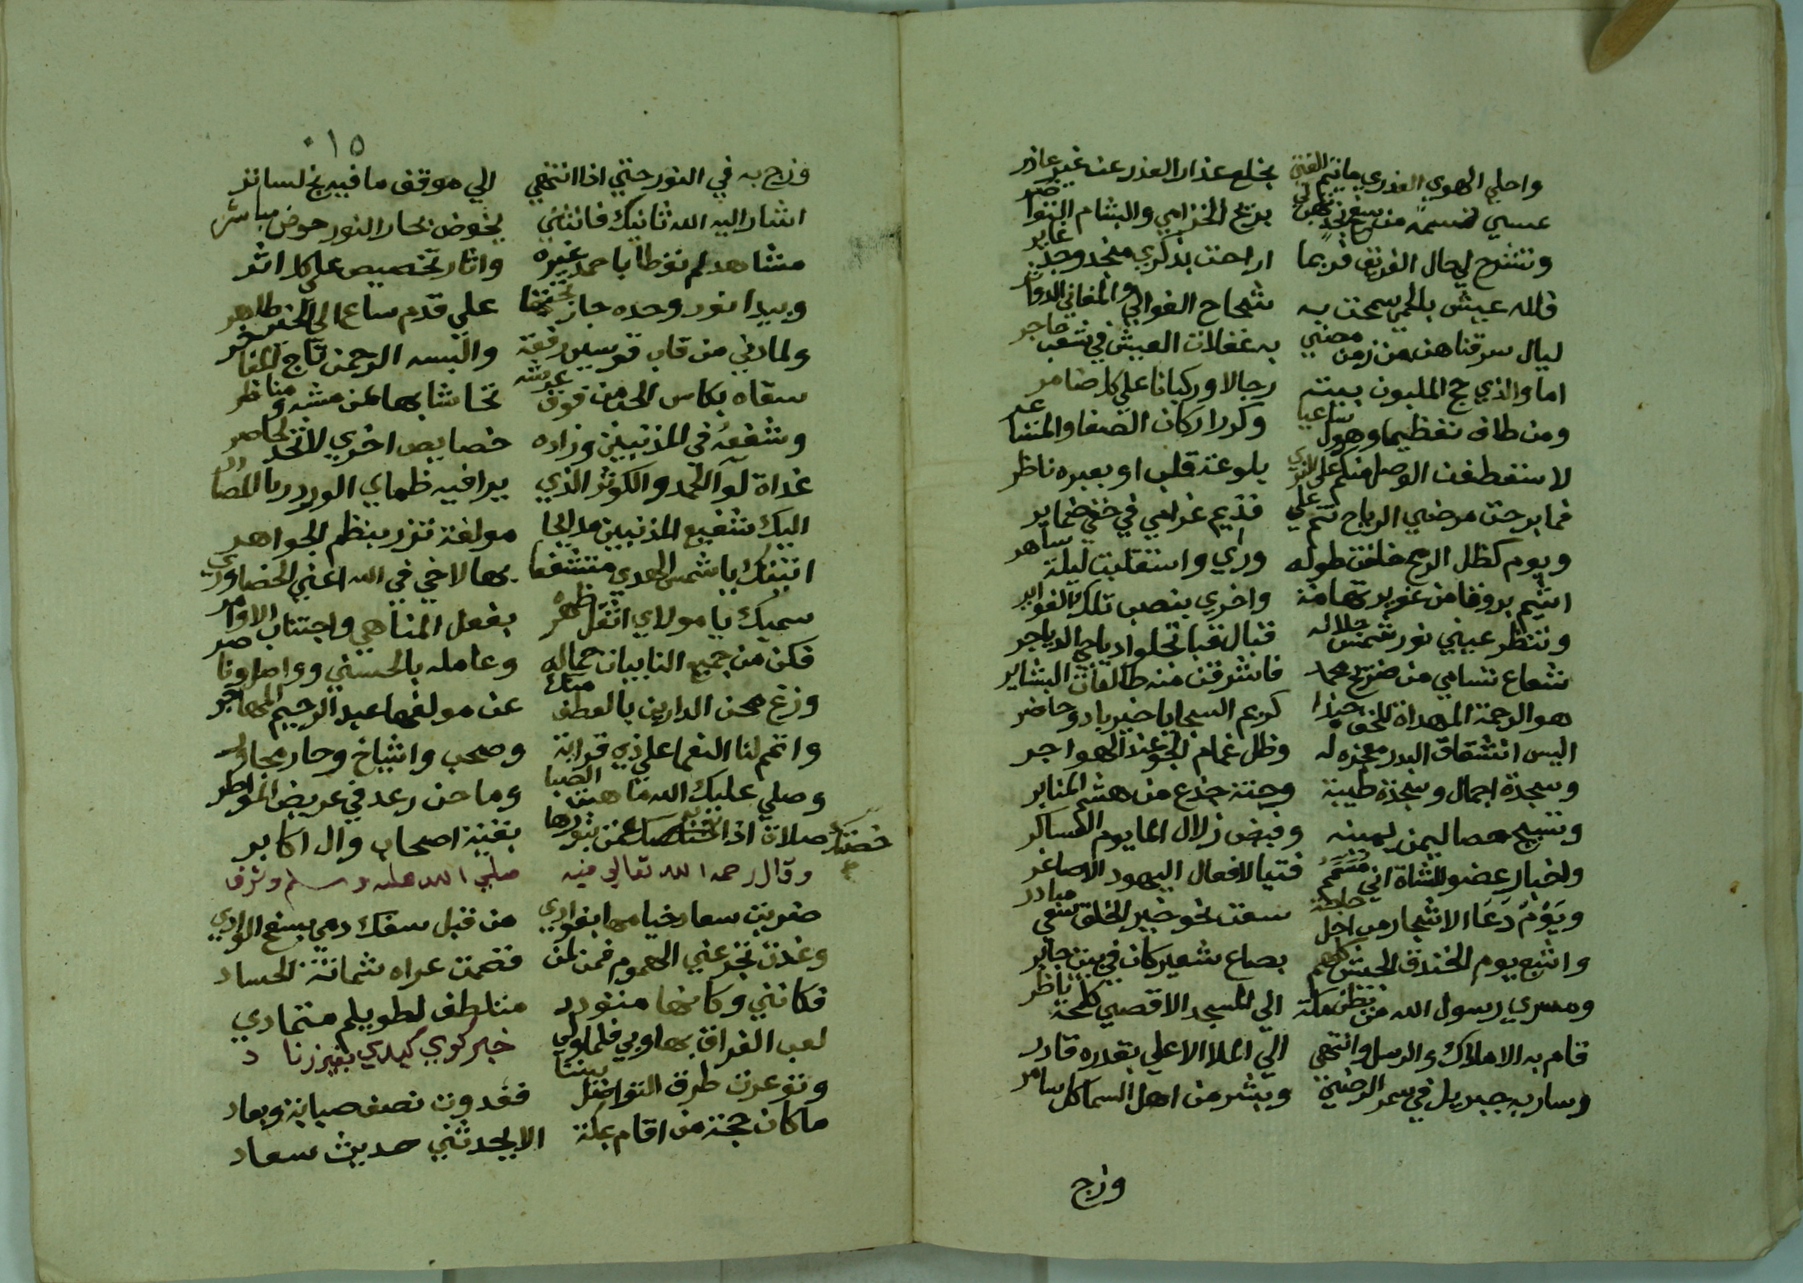 واحلي الهوي العذري ما تيم الفتي بخلع عذار العذر عند غير عاذر
عسي نسمة من سفح نجد تهب لي بريح الخزامي والبشام النواضر
وتشرح لي حال الفريق فربما اراحت بذكري منجد وجد غاير
فلله عيش بالحمي سمحت به شحاح الغوالي والمغاني الدواثر
ليال سرقناهن من زمن مضي به غفلات العيش في شعب حاجر
اما والذي حج الملبون بيته رجالا وركبانا علي كل ضامر
ومن طاف تعظيما وهرول ساعيا وكرر اركان الصفا والمشاعر
لاستعطفن الوصل منكم علي النوي بلوعة قلب او بعبره ناظر
فما برحت مرضي الرياح تنم علي قديم غرامي في خفي ضماير
ويوم كظل الرمح خلفت طوله وراي واستقلبت ليلة ساهر
اشيم بروقا من غوير تهامة واخري بنصب تلك الغواير
وتنظر عيني نور شمس جلاله قبال قبا تجلوا دياجي الدياجر
شعاع تسامي من ضريح محمد فاشرقت منه طالعات البشاير
هو الرحمة المهداة للخلق حبذا كريم السجايا خير باد وحاضر
اليس انشقاق البدر معجزه له وظل غمام الجو عند الهواجر
وسجدة اجمال وسجدة ظبية وحنة جذع من هشيم المنابر
وتسبيح حصا ليمن يمينه وفيض زلال الما يوم العساكر
واخبار عضو للشاة اني مسمم فتيا لافعال اليهود الاصاغر
ويوم دعا الاشجار من اجل حاجة سعت نحو خير الخلق سعي مبادر
واشبع يوم الخندق الجيش كلهم بصاع شعير كان في بيت جابر
ومسري رسول الله من بطن مكة الي المسجد الاقصي كلمحة ناظر
قام به الاملاك والرسل وانتهي الي الملا الاعلي بقدره قادر
وسار به جبريل في سمر الرضي وبشر من اهل السما كل سامر
وزج
٠١٥
وزج به في النور حتي اذا انتهي الي موقف ما فيه نهج لسائر
اشار اليه الله ثانيك فانثني يخوض بحار النور خوض مباشر
مشاهد لم نعطا يا احمد غيره واثار تخصيص علي كل اثر
وبيدا نور وحده جاز تختها علي قدم ساع الي الخير طاهر
ولما دني من قاب قوسين رفعة والبسه الرحمن تاج المفاخر
سقاه بكاس الحب من فوق عرشه تحاشا بها عن مشبه ومناظر
وشفعه في المذنبين وزاده خصايص اخري لاتحد لحاصر
غداة لوا الحمد والكوثر الذي يرافيه ظماي الورد ريا المصادر
اليك شفيع المذنبين مدايحا مولفة تزري بنظم الجواهر
اتيتك يا شمس الهدي متشفعا بها لاخي في الله اعني الخضاوري
سميك يا مولاي اثقل ظهره بفعل المناهي واجتناب الاوامر
فكن من جميع النايبات حماله وعامله بالحسني وواصل وناصر
وزع محن الدارين بالعطف منك عن مولفها عبد الرحيم المهاجر
واتمم لنا النعما علي ذي قرابة وصحب واشياخ وجار مجاور
وصلي عليك الله ما هبت الصبا وما حن رعد في عريض المواطر
صلاة اذا خصتك عمت بنورها بقية اصحاب وال اكابر
خصتك
وقال رحمه الله تعالي فيه صلي الله عليه وسلم وشرف
ضربت سعاد خيامها بفوادي من قبل سفك دمي بسفح الوادي
وغدت تجرعني الهموم فمن لمن فصمت عراه شماتة الحساد
فكانني وكانها متودد متلطف لطويلم متمادي
لعب الفراق بها وبي فلما ولي خبر كوي كبدي بغير زناد
وتوعرت طرق التواصل بيننا فغدوت نصف صبابة وبعاد
ما كان حجة من اقام بمكة الا يحدثني حديث سعاد